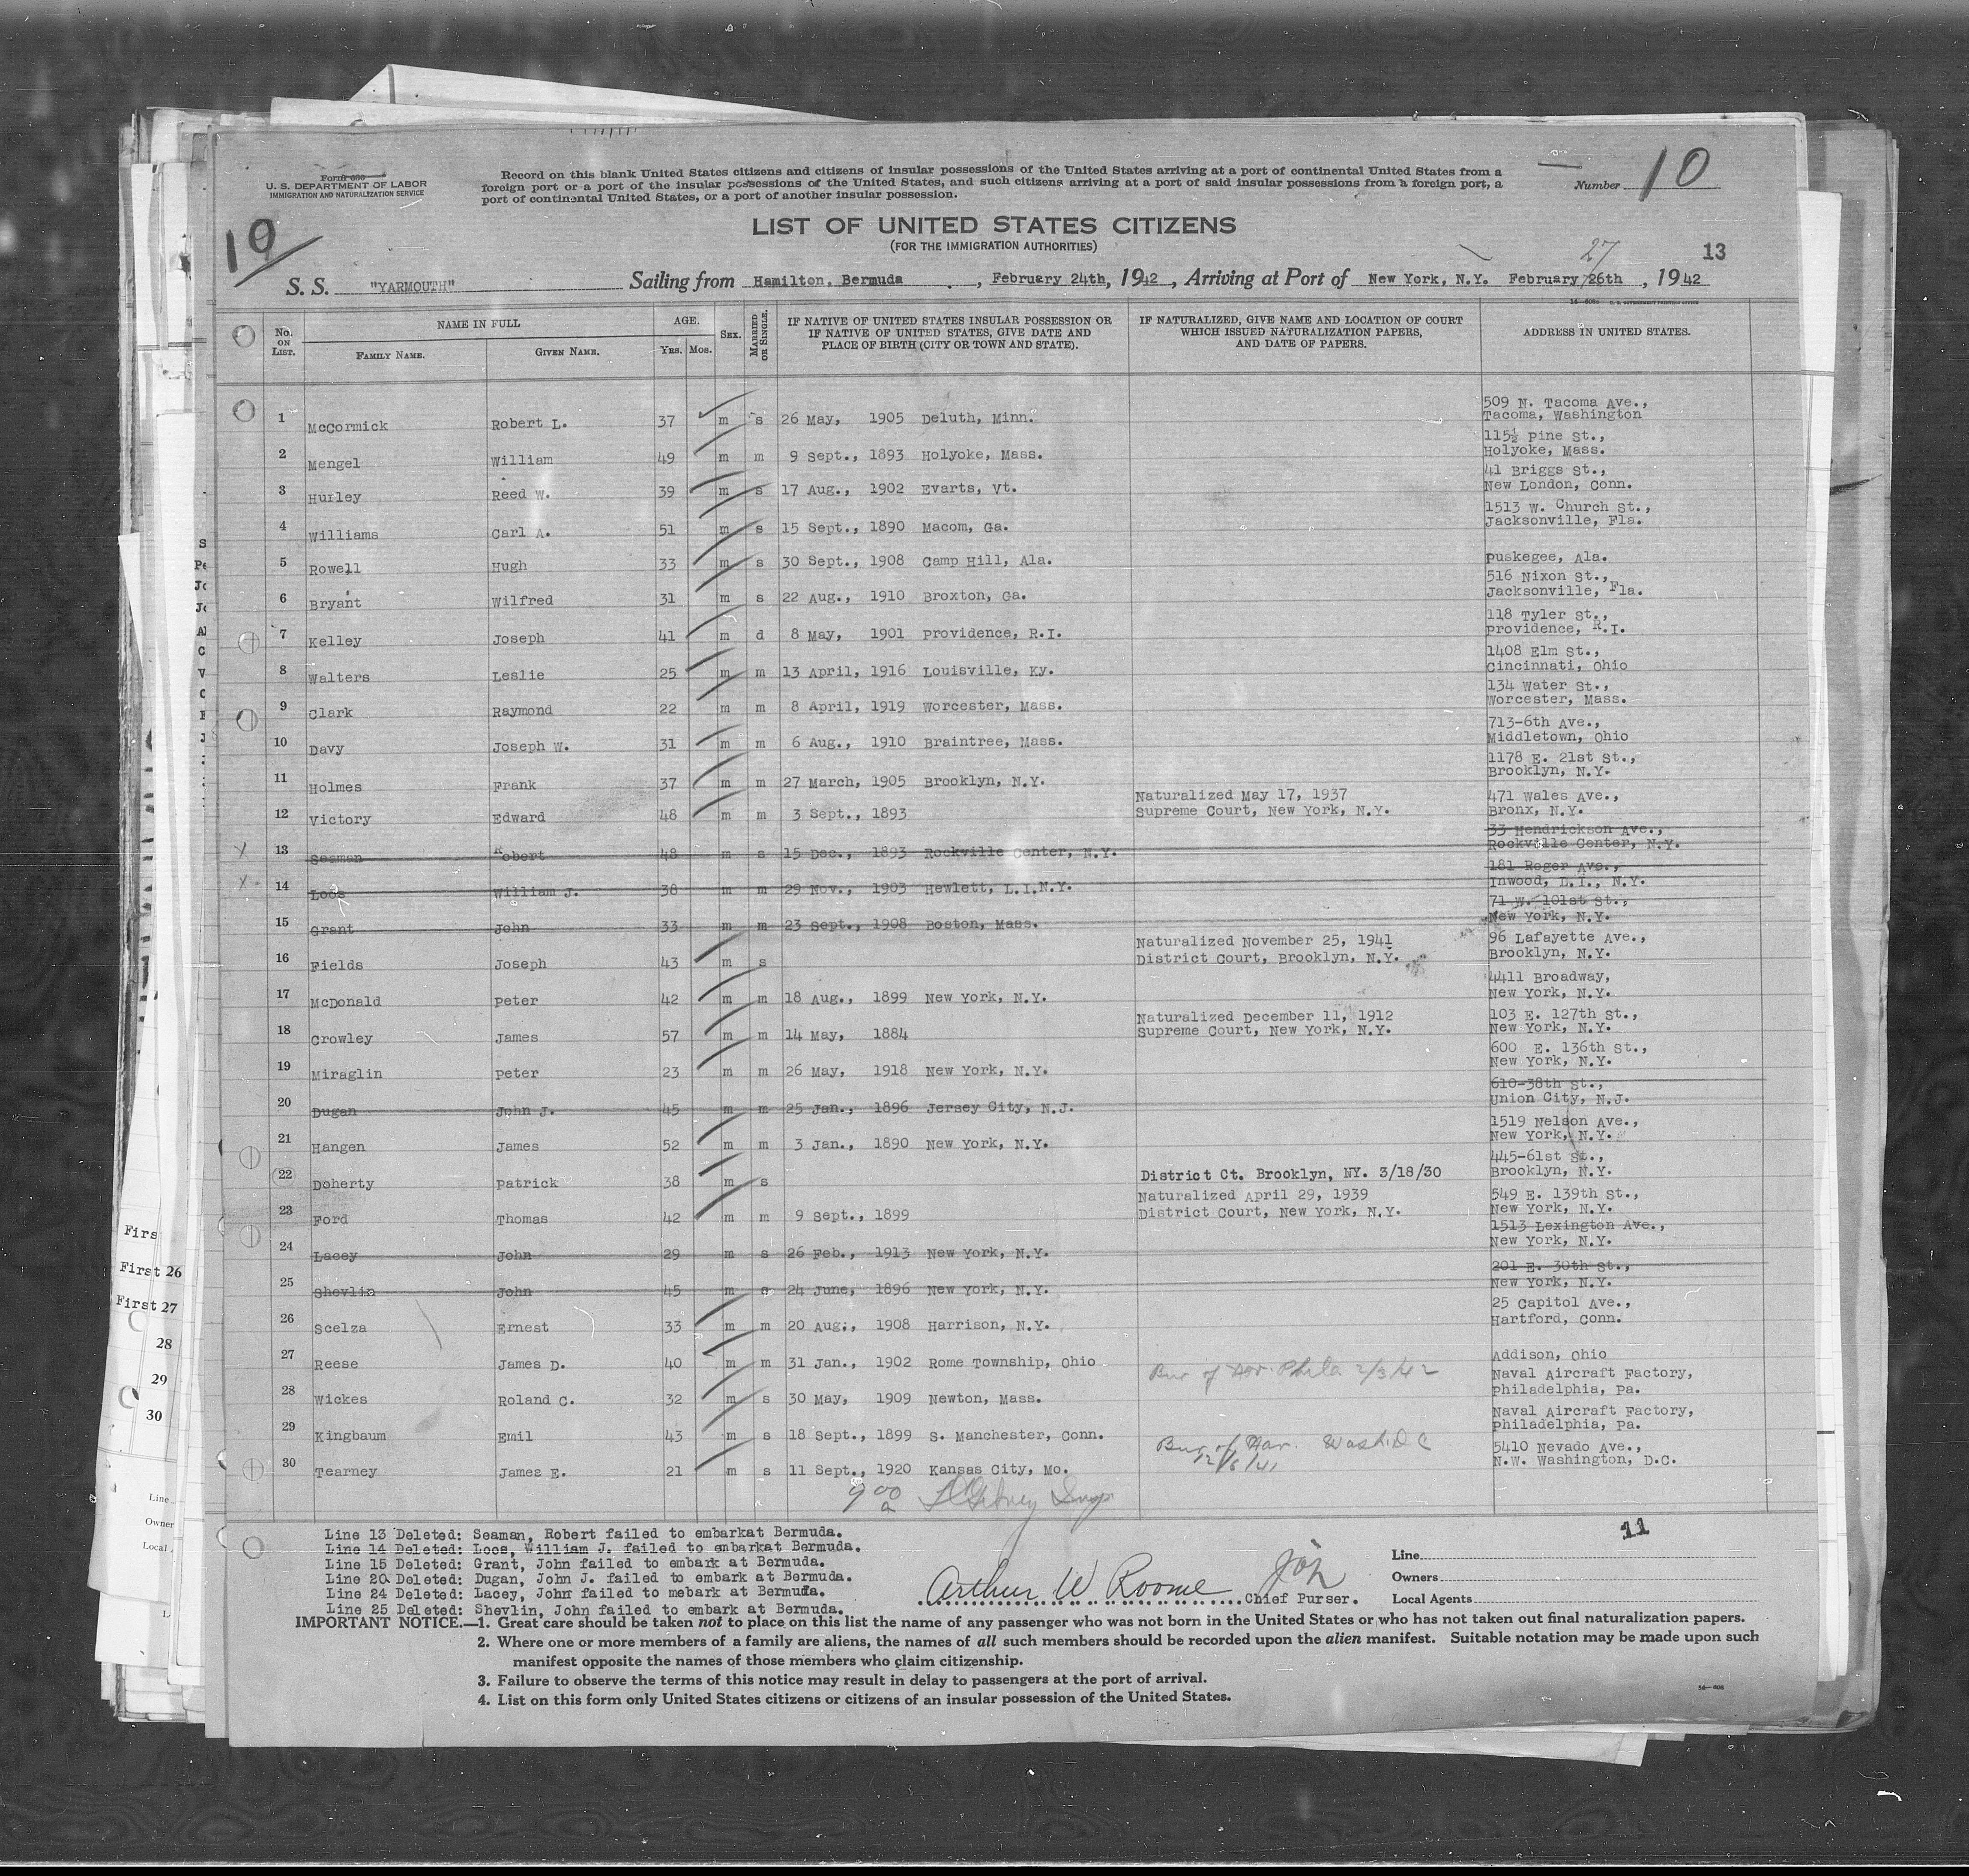 Form 630
U. S. DEPARTMENT OF LABOR
IMMIGRATION AND NATURALIZATION SERVICE
Record on this blank United States citizens and citizens of insular possessions of the United States arriving at a port of continental United States from a
foreign port or a port of the insular possessions of the United States, and such citizens arriving at a port of said insular possessions from a foreign port, a
port of continental United States, or a port of another insular possession.
Number 10
LIST OF UNITED STATES CITIZENS
(FOR THE IMMIGRATION AUTHORITIES)
10
27
13
S. S. "YARMOUTH" Sailing from Hamilton, Bermuda , February 24th, 1942 , Arriving at Port of New York, N.Y. February 26th , 1942
No. ON LIST.
NAME IN FULL
FAMILY NAME.
GIVEN NAME.
AGE.
YRS. MOS.
SEX.
MARRIED OR SINGLE.
IF NATIVE OF UNITED STATES INSULAR POSSESSION OR
IF NATIVE OF UNITED STATES, GIVE DATE AND
PLACE OF BIRTH (CITY OR TOWN AND STATE).
IF NATURALIZED, GIVE NAME AND LOCATION OF COURT
WHICH ISSUED NATURALIZATION PAPERS,
AND DATE OF PAPERS.
ADDRESS IN UNITED STATES.
1 McCormick Robert L. 37 m s 26 May, 1905 Deluth, Minn. 509 N. Tacoma Ave.,
Tacoma, Washington
2 Mengel William 49 m m 9 Sept., 1893 Holyoke, Mass. 115½ Pine St.,
Holyoke, Mass.
3 Hurley Reed W. 39 m s 17 Aug., 1902 Evarts, Vt. 41 Briggs St.,
New London, Conn.
4 Williams Carl A. 51 m s 15 Sept., 1890 Macom, Ga. 1513 W. Church St.,
Jacksonville, Fla.
5 Rowell Hugh 33 m s 30 Sept., 1908 Camp Hill, Ala. Puskegee, Ala.
6 Bryant Wilfred 31 m s 22 Aug., 1910 Broxton, Ga. 516 Nixon St.,
Jacksonville, Fla.
7 Kelley Joseph 41 m d 8 May, 1901 Providence, R.I. 118 Tyler St.,
Providence, R.I.
8 Walters Leslie 25 m m 13 April, 1916 Louisville, Ky. 1408 Elm St.,
Cincinnati, Ohio
9 Clark Raymond 22 m m 8 April, 1919 Worcester, Mass. 134 Water St.,
Worcester, Mass.
10 Davy Joseph W. 31 m m 6 Aug., 1910 Braintree, Mass. 713-6th Ave.,
Middletown, Ohio
11 Holmes Frank 37 m m 27 March, 1905 Brooklyn, N.Y. 1178 E. 21st St.,
Brooklyn, N.Y.
12 Victory Edward 48 m m 3 Sept., 1893 Naturalized May 17, 1937 471 Wales Ave.,
Supreme Court, New York, N.Y. Bronx, N.Y.
X 13 Seaman Robert 48 m s 15 Dec., 1893 Rockville Center, N.Y. 33 Hendrickson Ave.,
Rockville Center, N.Y.
X 14 Loos William J. 38 m m 29 Nov., 1903 Hewlett, L.I.N.Y. 181 Roger Ave.,
Inwood, L.I., N.Y.
15 Grant John 33 m m 23 Sept., 1908 Boston, Mass. 71 W. 101st St.,
New York, N.Y.
16 Fields Joseph 43 m s Naturalized November 25, 1941 96 Lafayette Ave.,
District Court, Brooklyn, N.Y. Brooklyn, N.Y.
17 McDonald Peter 42 m m 18 Aug., 1899 New York, N.Y. 4411 Broadway,
New York, N.Y.
18 Crowley James 57 m m 14 May, 1884 Naturalized December 11, 1912 103 E. 127th St.,
Supreme Court, New York, N.Y. New York, N.Y.
19 Miraglin Peter 23 m m 26 May, 1918 New York, N.Y. 600 E. 136th St.,
New York, N.Y.
20 Dugan John J. 45 m m 25 Jan., 1896 Jersey City, N.J. 610-38th St.,
Union City, N.J.
21 Hangen James 52 m m 3 Jan., 1890 New York, N.Y. 1519 Nelson Ave.,
New York, N.Y.
22 Doherty Patrick 38 m s District Ct. Brooklyn, NY. 3/18/30 445-61st St.,
Brooklyn, N.Y.
23 Ford Thomas 42 m m 9 Sept., 1899 Naturalized April 29, 1939 549 E. 139th St.,
District Court, New York, N.Y. New York, N.Y.
24 Lacey John 29 m s 26 Feb., 1913 New York, N.Y. 1513 Lexington Ave.,
New York, N.Y.
25 Shevlin John 45 m s 24 June, 1896 New York, N.Y. 201 E. 30th St.,
New York, N.Y.
26 Scelza Ernest 33 m m 20 Aug., 1908 Harrison, N.Y. 25 Capitol Ave.,
Hartford, Conn.
27 Reese James D. 40 m m 31 Jan., 1902 Rome Township, Ohio Addison, Ohio
28 Wickes Roland C. 32 m s 30 May, 1909 Newton, Mass. Bur of Nav. Phila 2/3/42 Naval Aircraft Factory,
Philadelphia, Pa.
29 Kingbaum Emil 43 m s 18 Sept., 1899 S. Manchester, Conn. Naval Aircraft Factory,
Philadelphia, Pa.
30 Tearney James E. 21 m s 11 Sept., 1920 Kansas City, Mo. Bur of Nav. Wash. D C 5410 Nevado Ave.,
12/6/41 N.W. Washington, D.C.
9 00 a
11
Line 13 Deleted: Seaman, Robert failed to embarkat Bermuda.
Line 14 Deleted: Loos, William J. failed to embarkat Bermuda.
Line 15 Deleted: Grant, John failed to embark at Bermuda.
Line 20 Deleted: Dugan, John J. failed to embark at Bermuda.
Line 24 Deleted: Lacey, John failed to mebark at Bermuda.
Line 25 Deleted: Shevlin, John failed to embark at Bermuda.
Arthur W Roome Chief Purser.
Line
Owners
Local Agents
IMPORTANT NOTICE.—1. Great care should be taken not to place on this list the name of any passenger who was not born in the United States or who has not taken out final naturalization papers.
2. Where one or more members of a family are aliens, the names of all such members should be recorded upon the alien manifest. Suitable notation may be made upon such
manifest opposite the names of those members who claim citizenship.
3. Failure to observe the terms of this notice may result in delay to passengers at the port of arrival.
4. List on this form only United States citizens or citizens of an insular possession of the United States.
First
First 26
First 27
28
29
30
Line
Owner
Local